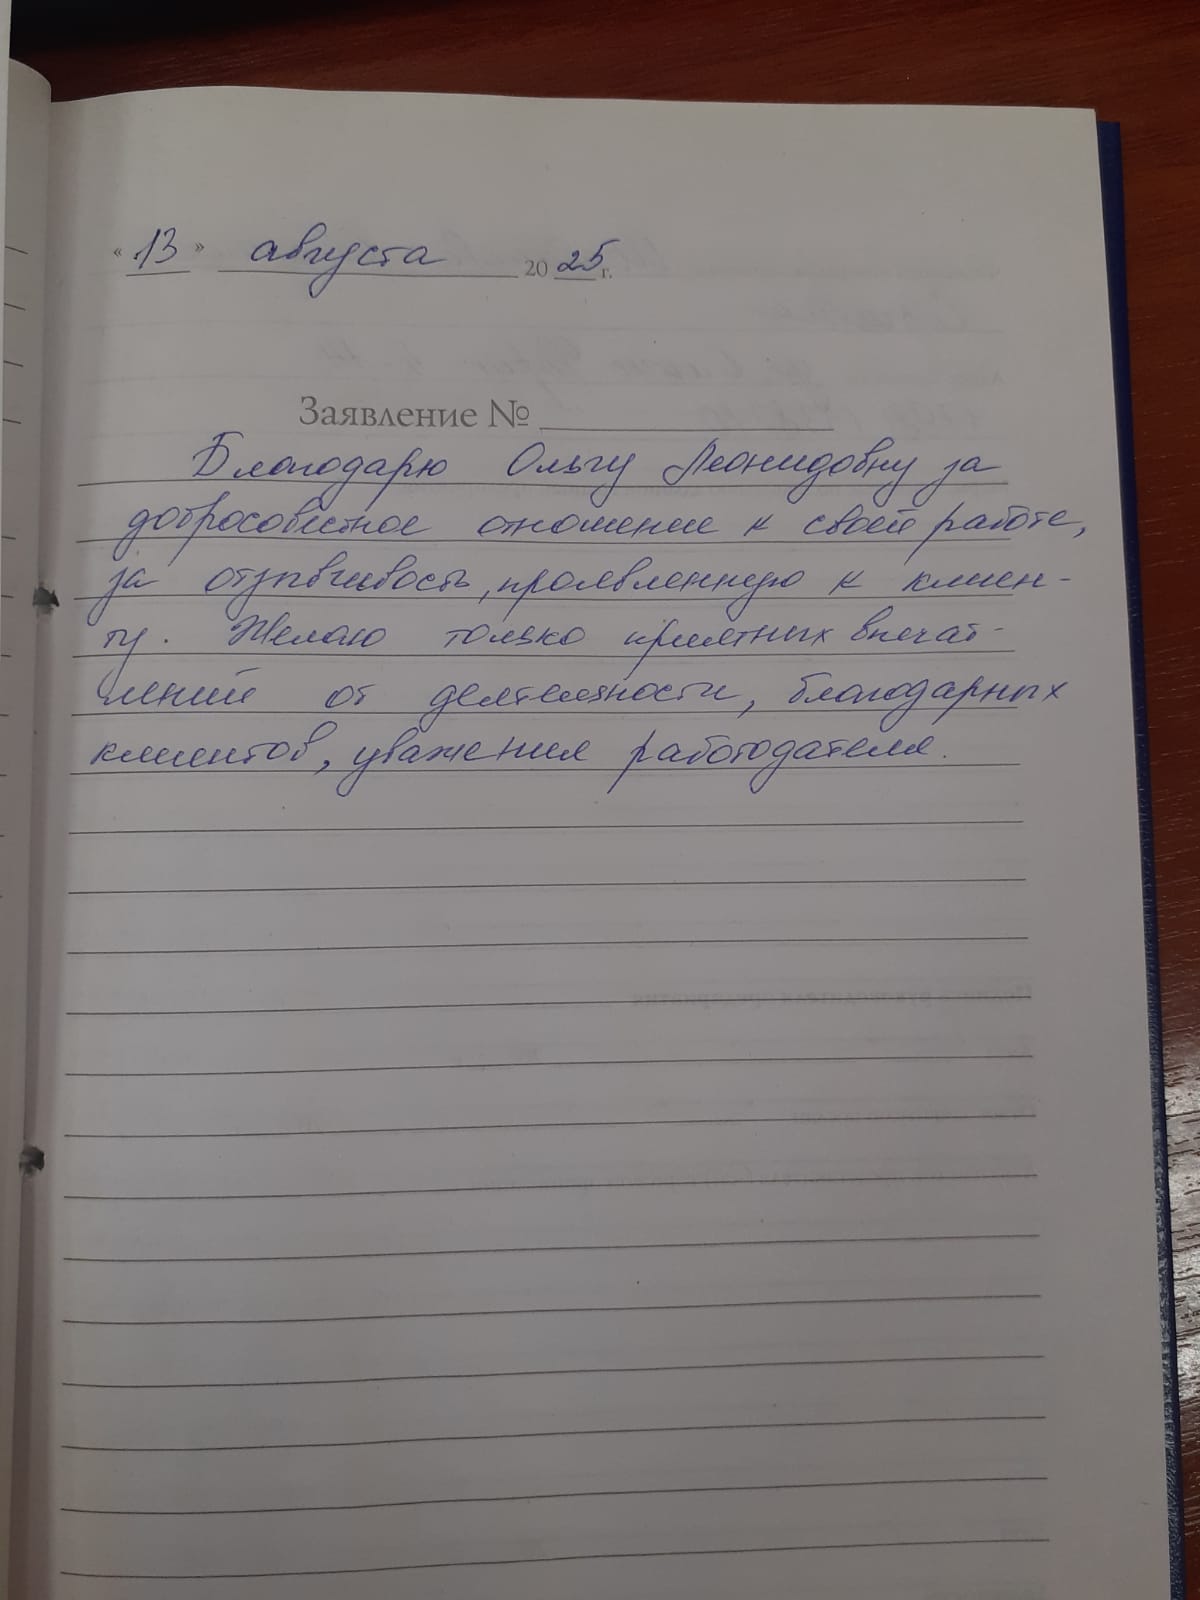 « 13 » августа 20 25 г.
Заявление № ____
Благодарю Ольгу Леонидовну за
добросовестное отношение к своей работе,
за отзывчивость, проявленную к клиен-
ту. Желаю только приятных впечат-
лений от деятельности, благодарных
клиентов, уважения работодателя.